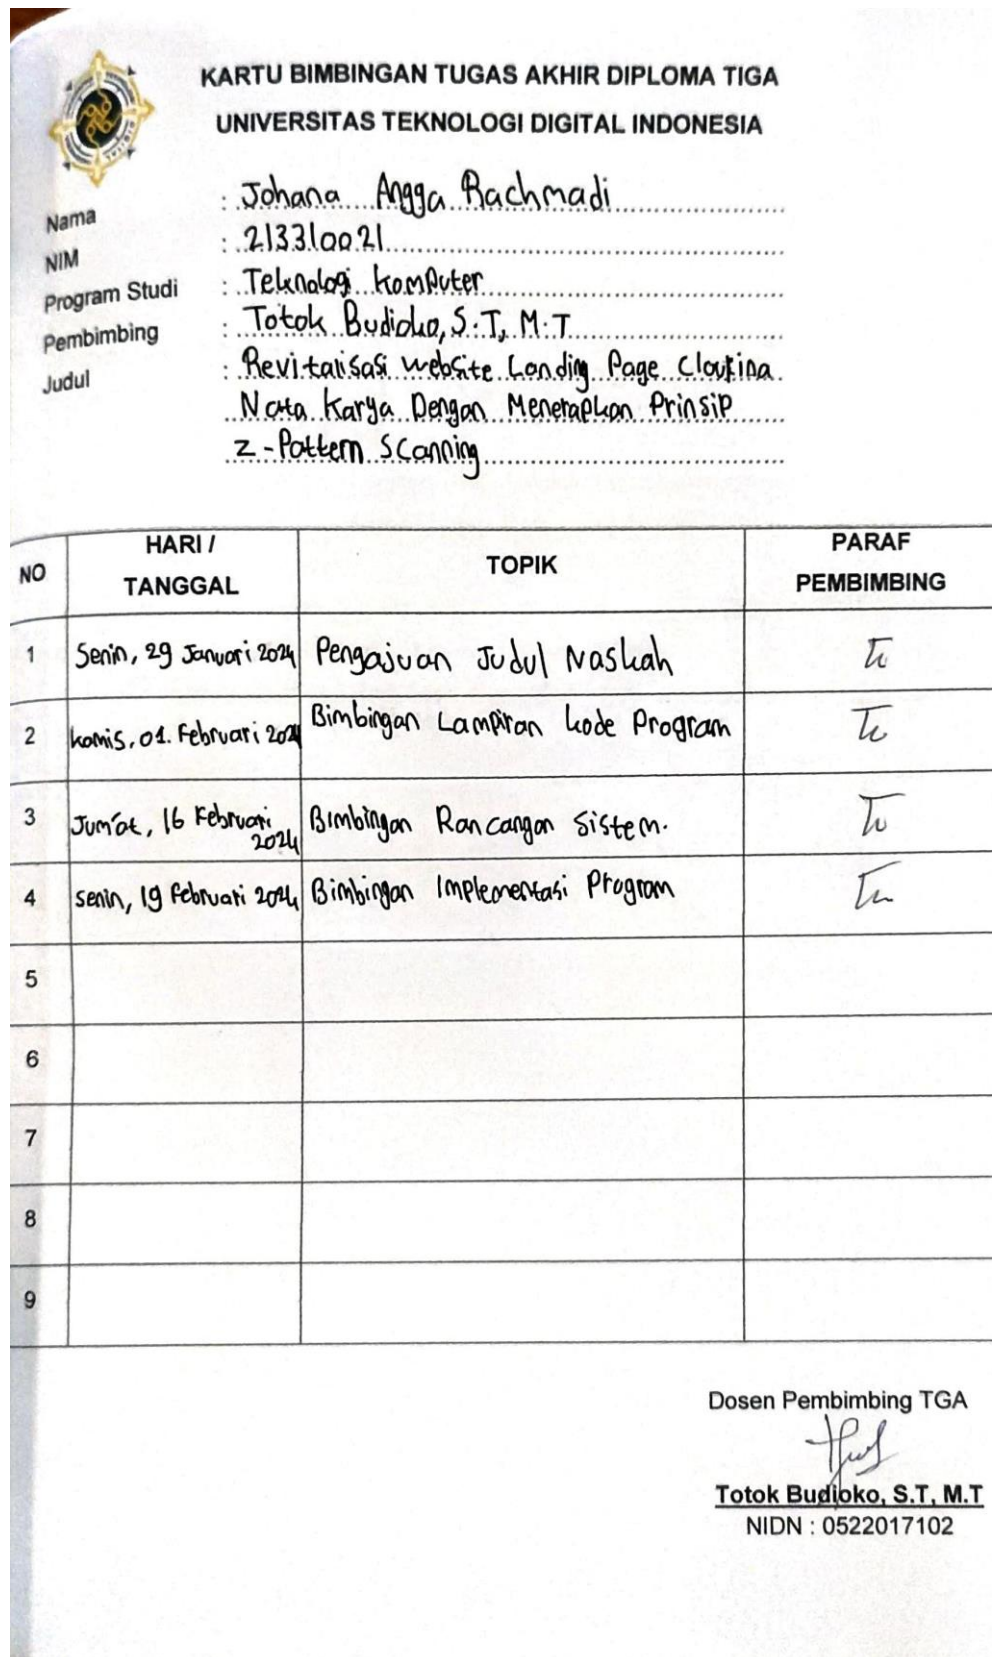 KARTU BIMBINGAN TUGAS AKHIR DIPLOMA TIGA
UNIVERSITAS TEKNOLOGI DIGITAL INDONESIA
Nama : Johana Angga Rachmadi
NIM : 213310021
Program Studi : Teknologi Komputer
Pembimbing : Totok Budioko, S.T, M.T
Judul : Revitaisasi website Landing Page Cloufina
Nata Karya Dengan Menerapkan Prinsip
Z-Pattern Scanning
NO HARI / TANGGAL TOPIK PARAF PEMBIMBING
1 Senin, 29 Januari 2024 Pengajuan Judul Naskah
2 Kamis, 01. Februari 2024 Bimbingan Lampiran kode Program
3 Jum'at, 16 Februari 2024 Bimbingan Rancangan Sistem.
4 Senin, 19 Februari 2024 Bimbingan Implementasi Program
5
6
7
8
9
Dosen Pembimbing TGA
Totok Budioko, S.T, M.T
NIDN : 0522017102